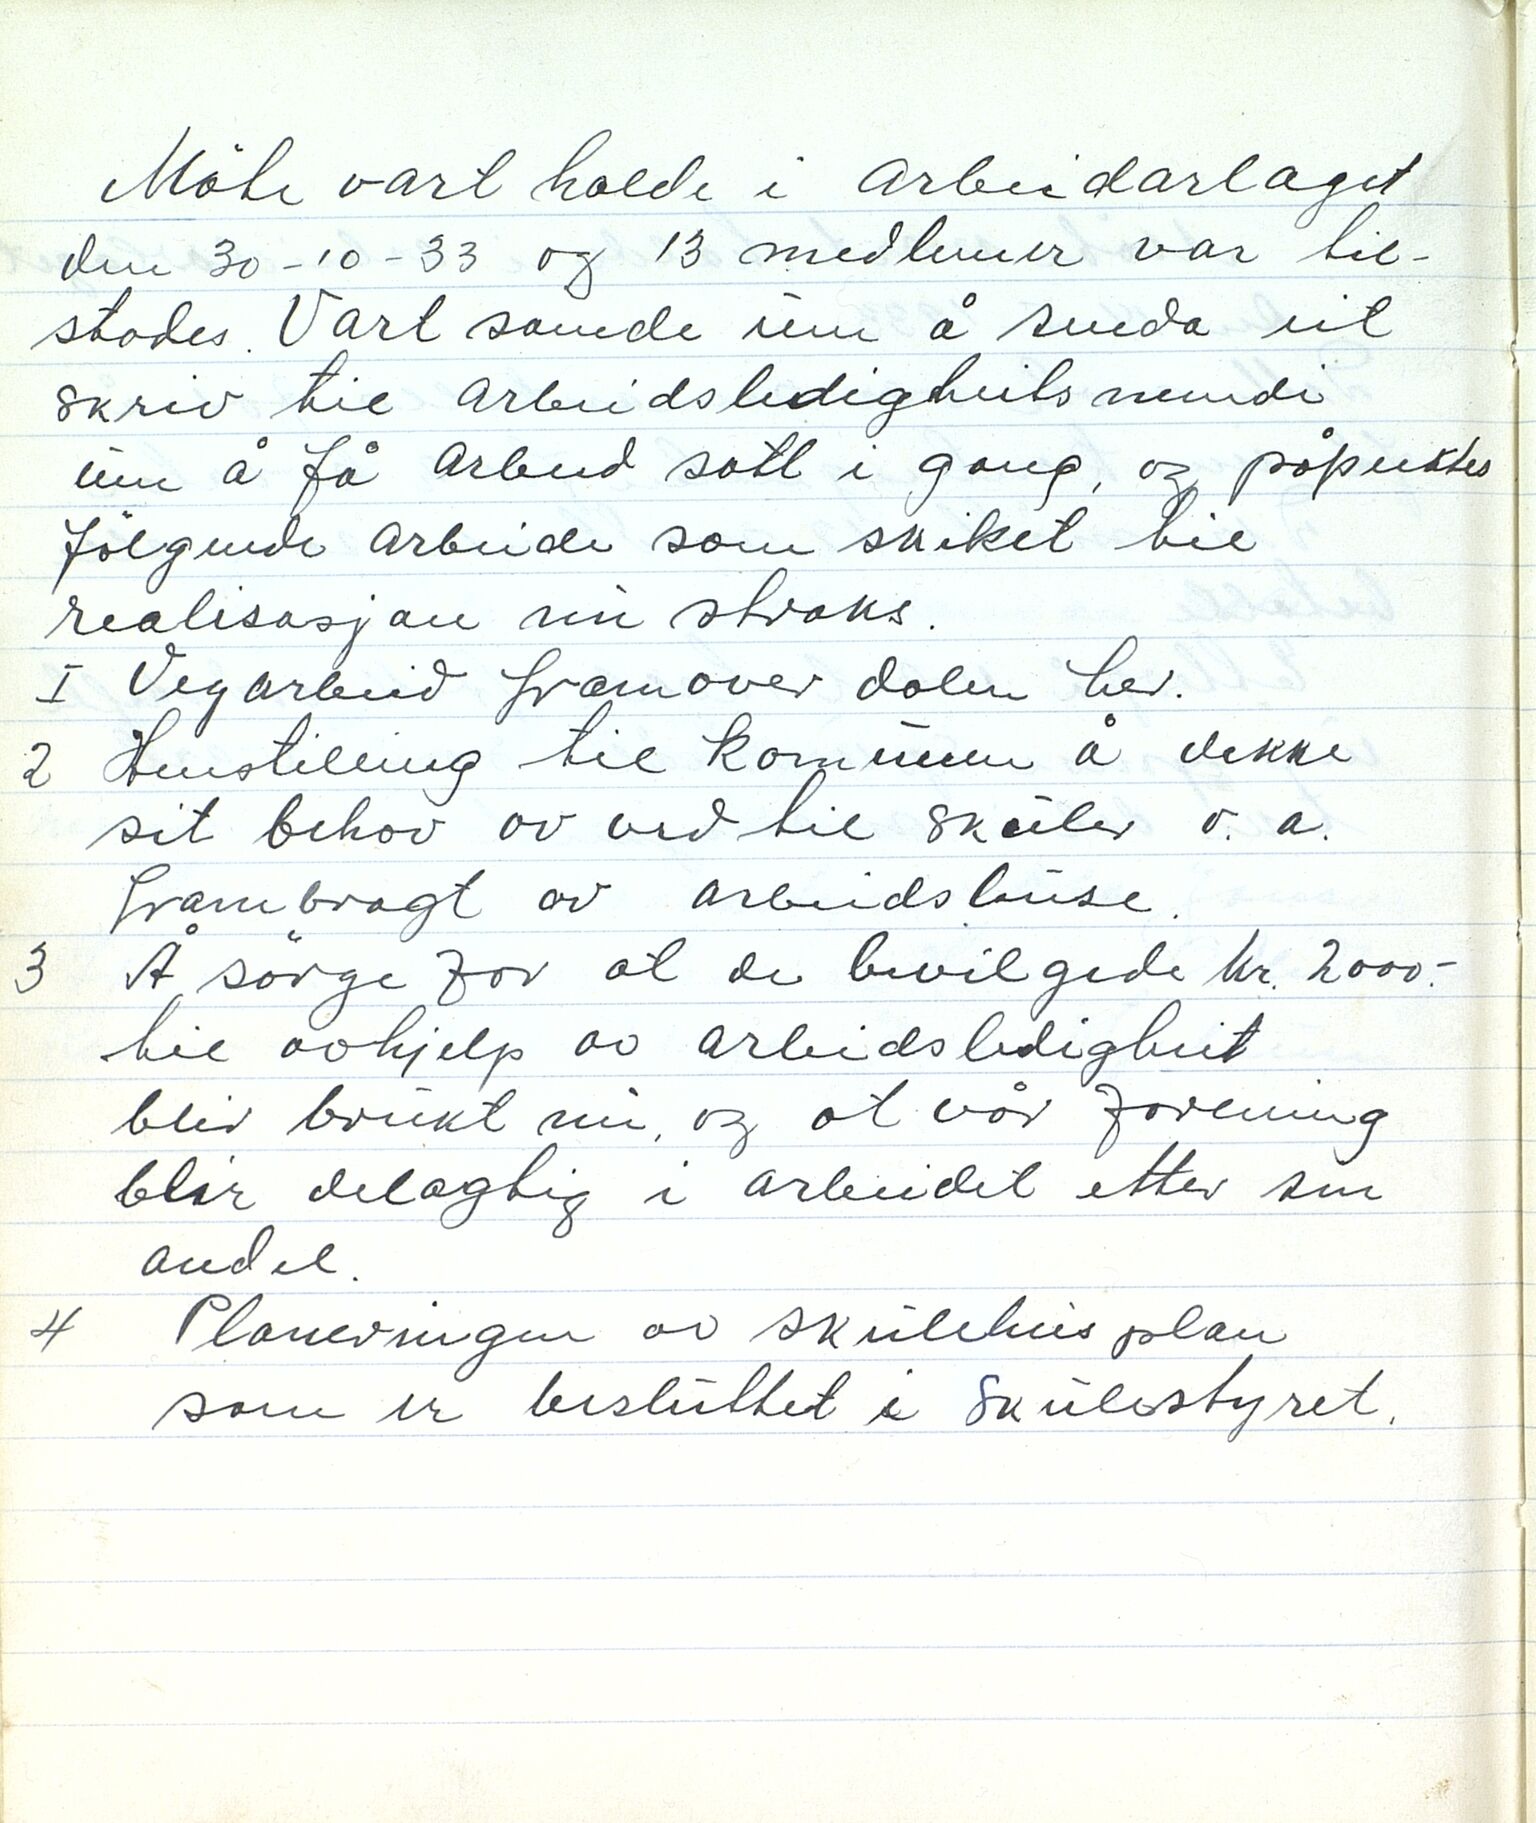 Möte vart halde i Arbeidarlaget
den 30-10-33 og 13 medlemer var til-
stades. Vart samde um å senda ut
skriv til Arbeidsledigheitsnemndi
um å få Arbeid satt i gang, og påpektes
fölgende Arbeide som skiket til
realisasjon nu straks.
I Vegarbeid framover dalen her.
2 Henstilling til kommunen å dekke
sit behov av ved til skuler o. a.
frambragt av arbeidslause.
3 Å sörge for at de bevilgede kr. 2000.-
til avhjelp av arbeidsledigheit
blir brukt nu, og at vår forening
blir delagtig i arbeidet etter sin
andel.
4 Planeringen av skulehusplan
som er besluttet i Skulestyret.